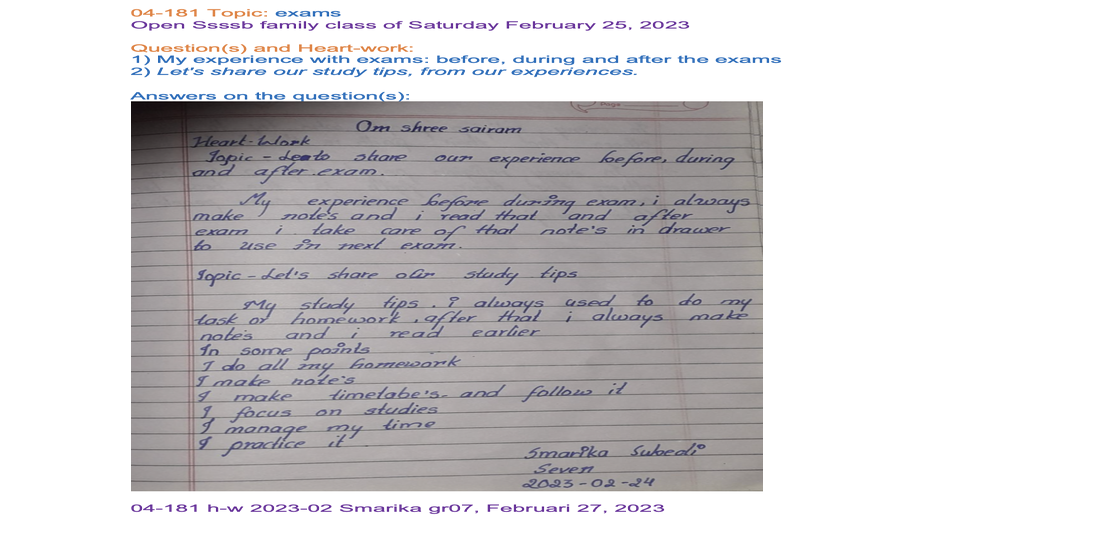 04-181 Topic: exams
Open Ssssb family class of Saturday February 25, 2023
Question(s) and Heart-work:
1) My experience with exams: before, during and after the exams
2) Let's share our study tips, from our experiences.
Answers on the question(s):
Om shree sairam
Heart-Work
Topic - Lesto share our experience before, during
and after exam.
My experience before during exam, i always
make notes and i read that and after
exam i take care of that note's in drawer
to use in next exam.
Topic - Let's share our study tips
My study tips. I always used to do my
task or homework, after that i always make
notes and i read earlier
In some points
I do all my homework
I make note's
I make timetabe's and follow it
I focus on studies
I manage my time
I practice it
Smarika Subedi
Seven
2023-02-24
04-181 h-w 2023-02 Smarika gr07, Februari 27, 2023